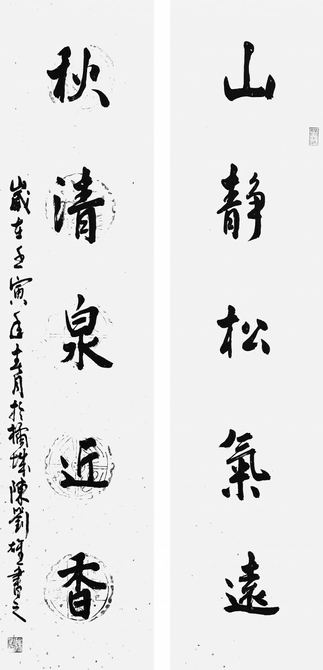 山静松氣遠
秋清泉近香
歲在壬寅年吉月於橘城陳劉雄書之